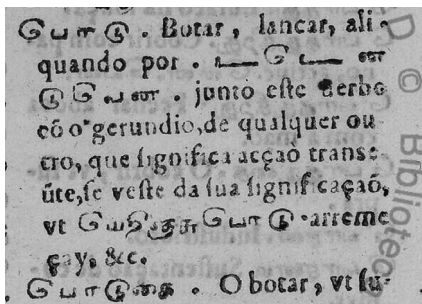 பொடு. Botar, lancar, ali-
quando por.
junto eſte verbo
cõ o gerundio, de qualquer ou
tro, que ſignifica acçaõ tranſ-
ũte, ſe veſte da ſua ſignificaçaõ,
vt யெறிஞ்சுபொடு. arreme
çay, &c.
பொடுகை. O botar, vt ſu-
D © Bibliotec